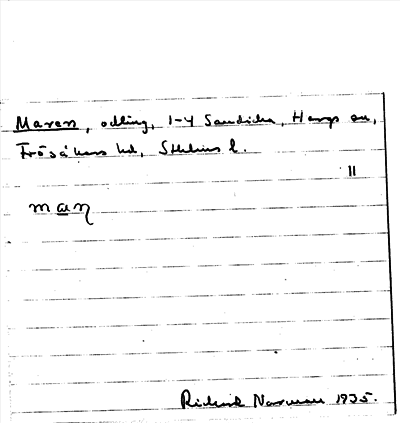 Maren, odling, 1-4 Sandika, Hargs sn,
Frösåkers hd, Sthlms l.
II
maŋ
Rickard Norrman 1935.